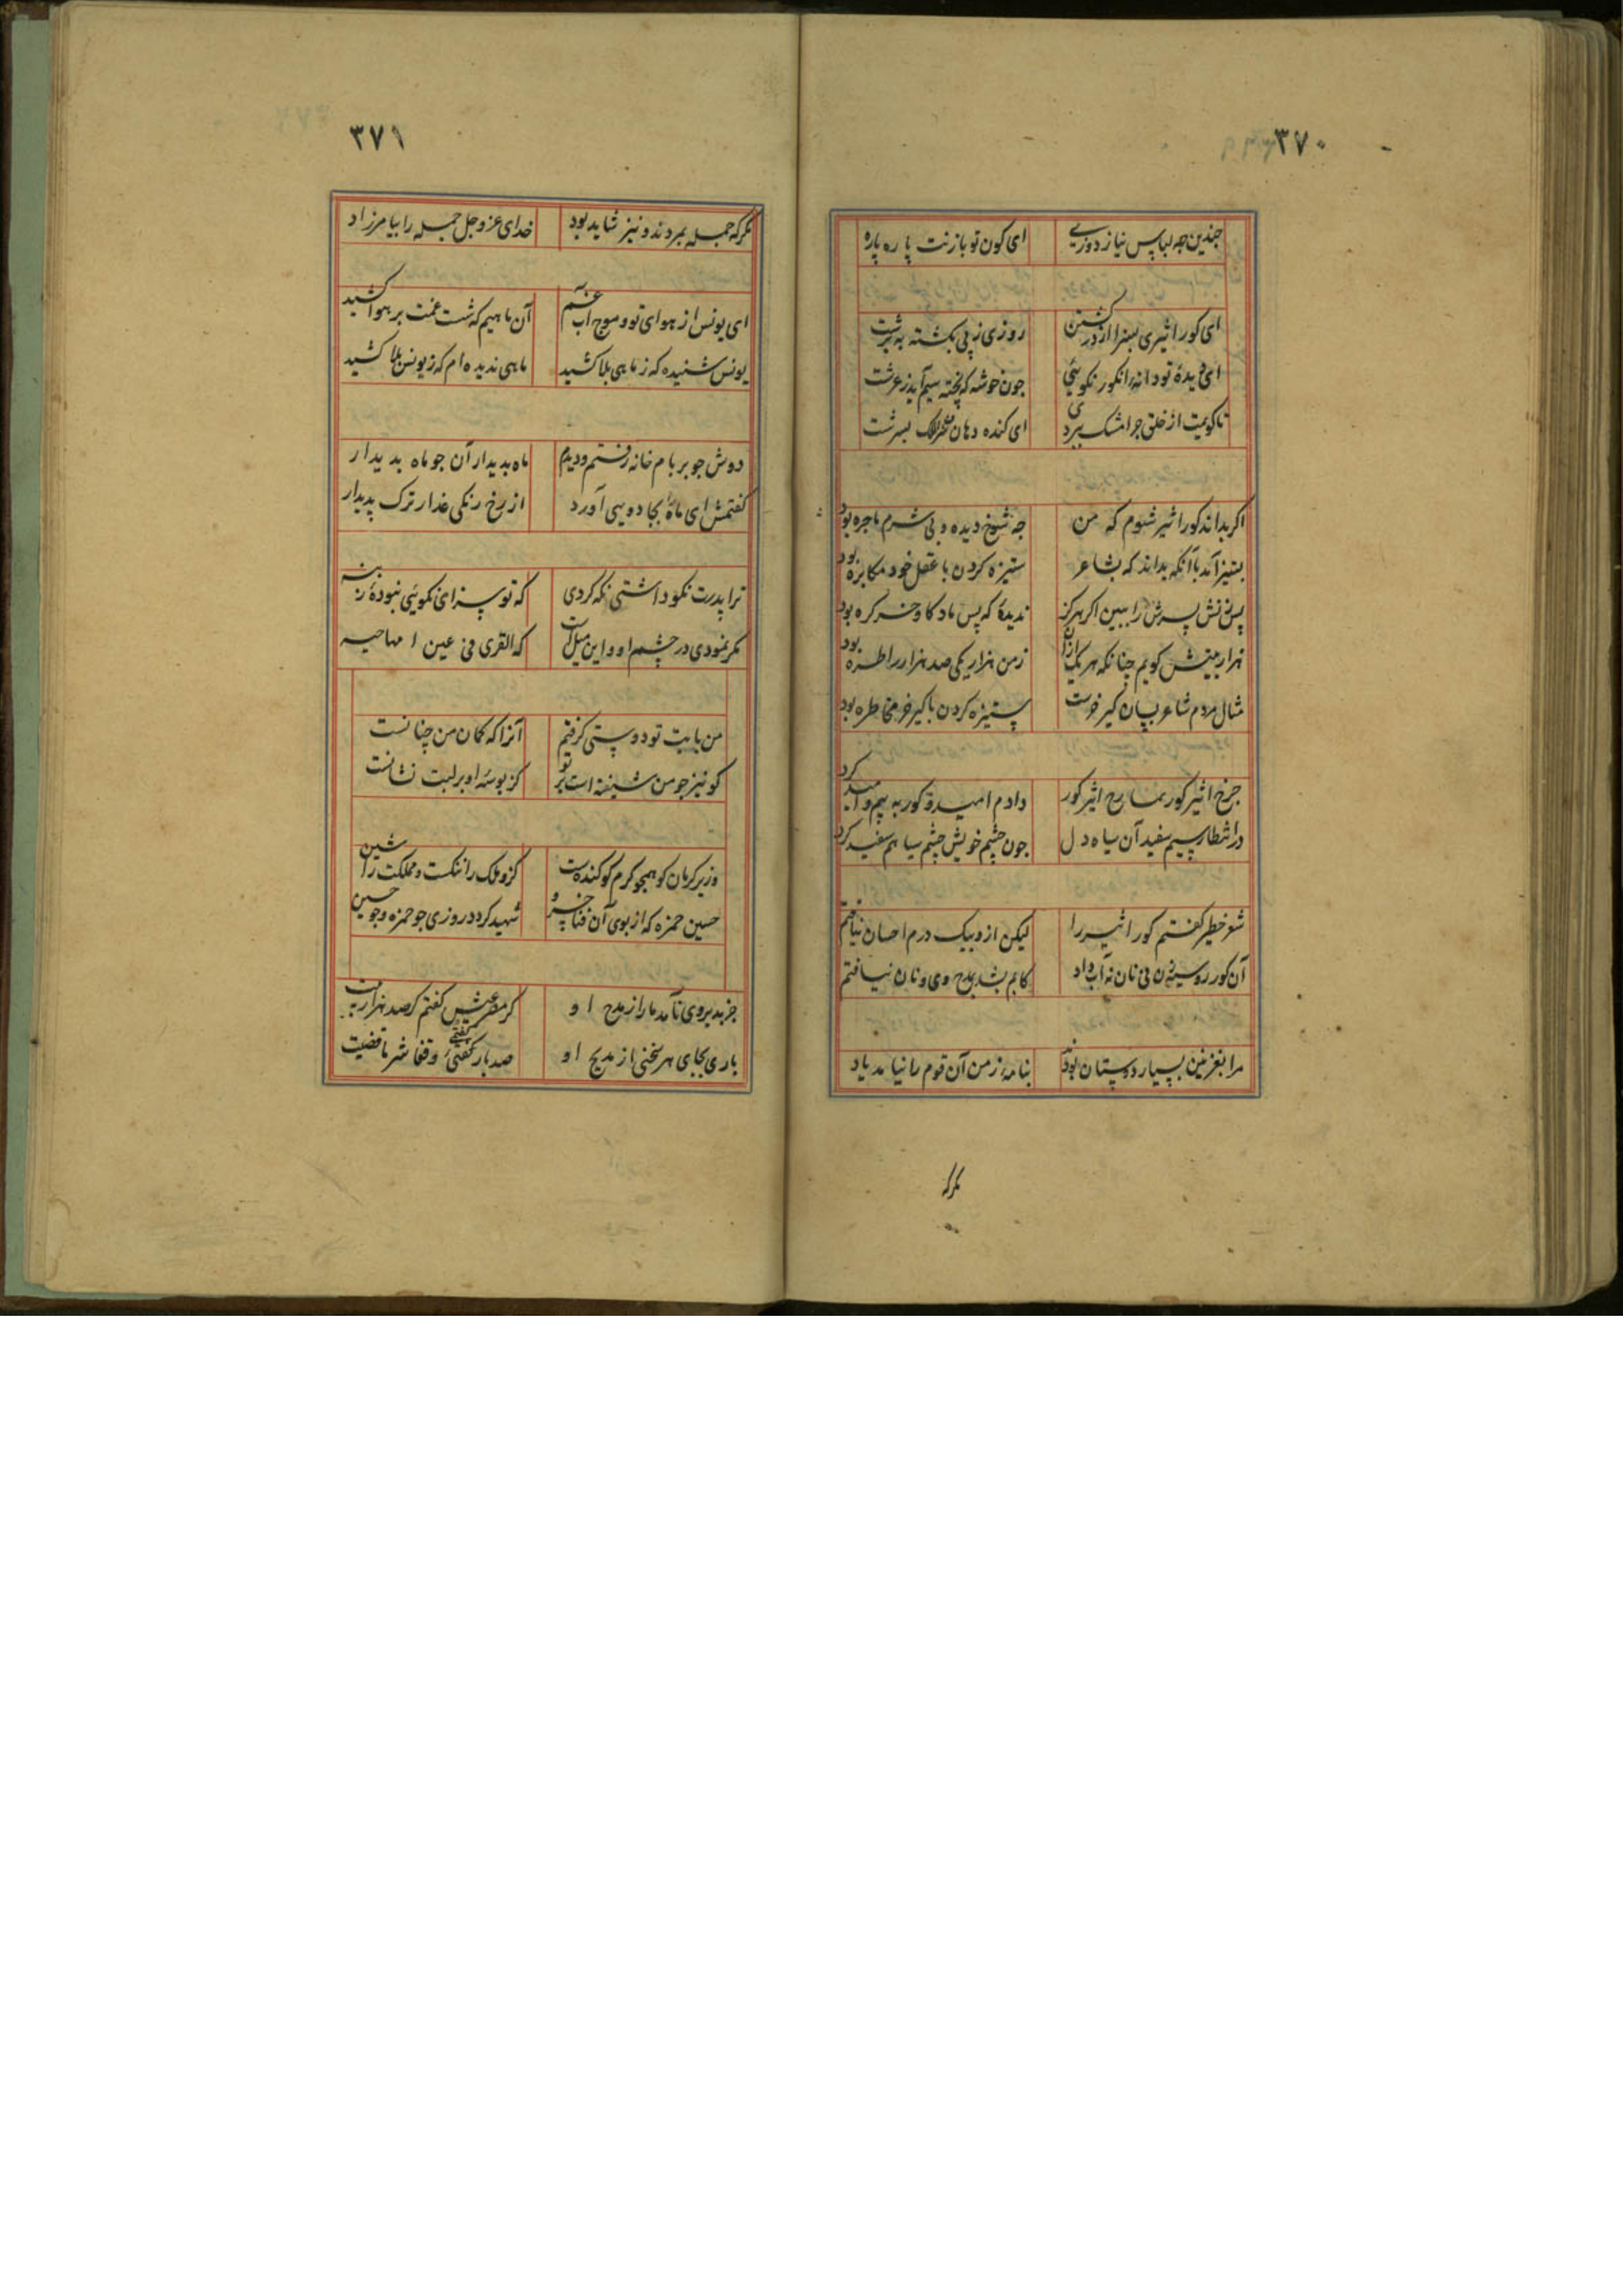 ۳۷۰
چندین چه لباس نیاز دوزی ای کون تو بازنت پاره پاره
ای کور اثیری بسزا از در کشتن روزی ز پی کشته به
ای دیدهٔ تو دانهٔ انکور نکوئی چون خوشه که پخته
تا کویت از خلق چرا مشک ای کنده دهان
اگر بداند کور اثیر شوم که من چه شوخ دیده و بی شرم ماجره بود
بستیز آید با آنکه بداند که بشاعر ستیزه کردن با عقل خود مکابره بود
پسرش را ببین اگر هرگز ندیدهٔ که پس ماده کاو خر کره بود
هزار بیتش کویم چنانکه هر یک ازان ز من هزار یکی صد هزار را طره بود
مثال مردم شاعر بسان کیر خرست ستیزه کردن با کیر خر مخاطره بود
چرخ اثیر کور بمدح اثیر کور دادم امید و کور به بیم و امید کرد
در انتظار سیم سفید آن سیاه دل چون چشم خویش چشم سیاهم سفید کرد
شعر خطیر کفتم کور اثیر را لیکن از و بیک درم احسان نیافتم
آن کور روسپی زن نی نان نه آب داد کابم بشد بمدح وی و نان نیافتم
مرا بغزنین بسیار دوستان بودند بنامه ز من آن قوم را نیامد یاد
مکر که
۳۷۱
مکر که جمله بمردند و نیز شاید بود خدای عز و جل جمله را بیامرزاد
ای یونس از هوای تو و موج آب غم آن ماهیم که شست غمت بر هوا کشید
یونس شنیده که ز ماهی بلا کشید ماهی ندیده ام که ز یونس بلا کشید
دوش چو بر بام خانه رفتم و دیدم ماه بدیدار آن چو ماه بدیدار
کفتمش ای ماه بجادویی آورد از رخ زنکی عذار ترک پدیدار
ترا پدرت نکو داشتی نکه کردی که تو سزای نکوئی نبودهٔ
مکر نمودی در چشم او و این مثل است که القرنی فی عین امها حسنه
من با بت تو دوستی کرفتم آنرا که کمان من چنانست
کو نیز چو من شیفته است بر تو کز بوسهٔ او بر لبت نشانست
وزیر کرمان کو همچو کرم کو کنده است کزو ملک را ننکست و مملکت را شین
حسین حمزه که از بوی آن خسرو شهید کردد روزی چو حمزه و چو حسین
جز بد بروی نآمد ما را از مدح او کر مدحتش کفتم کر صد هزار بیت
باری بجای هر سخنی از مدیح او صد بار کفتمی وقفا شر ما قضیت